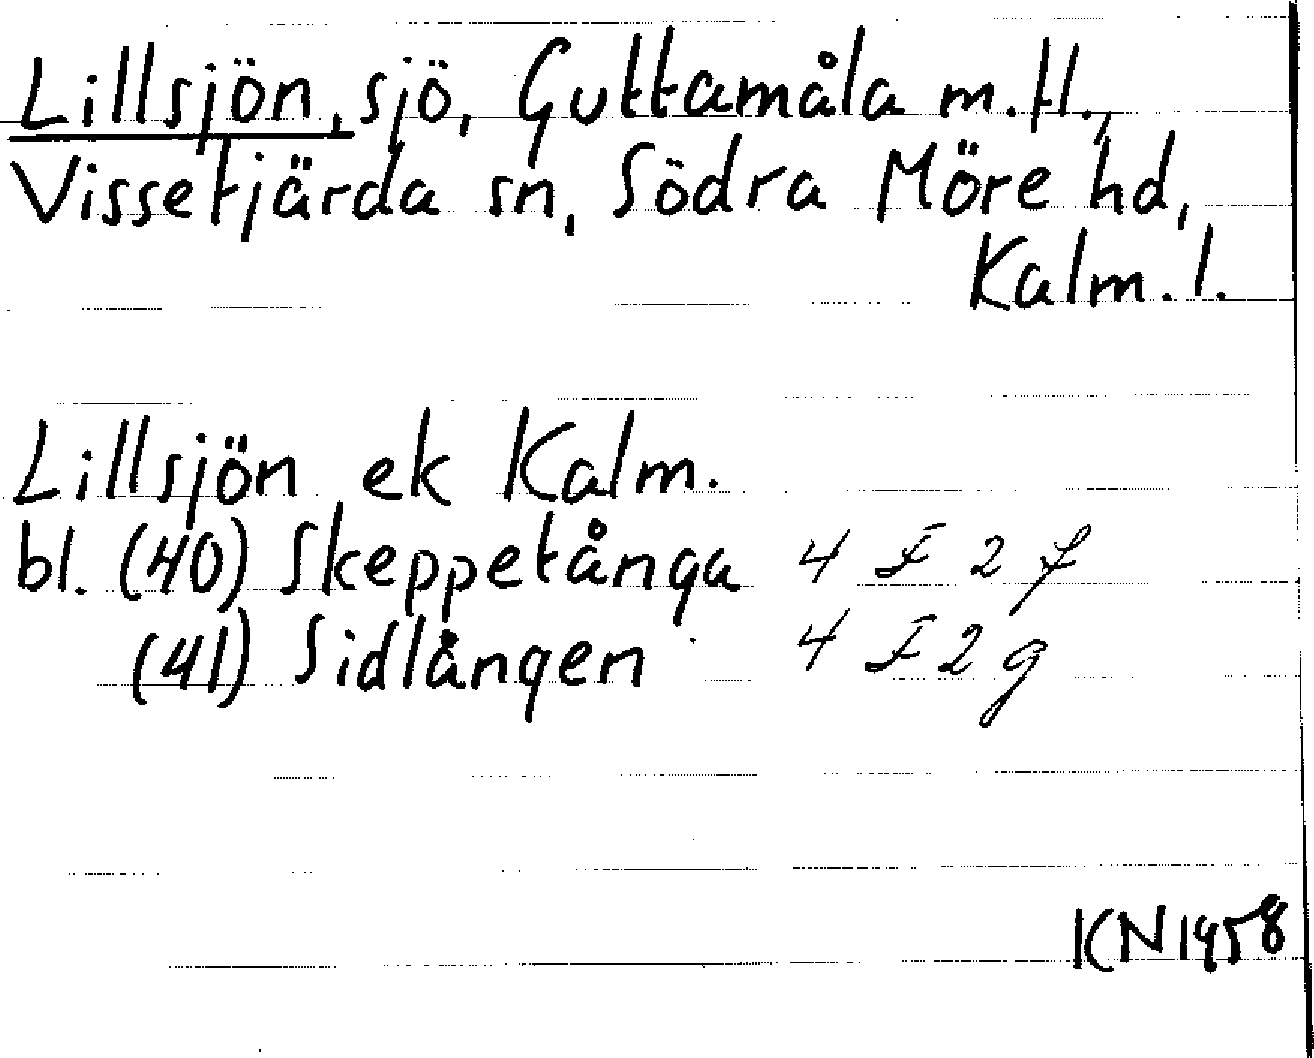 Lillsjön, sjö, Guttamåla m. fl.,
Vissefjärda sn, Södra Möre hd,
Kalm. l.
Lillsjön ek Kalm.
bl. (40) Skeppetånga 4 F 2 f
(41) Sidlången 4 F 2 g
KN 1958